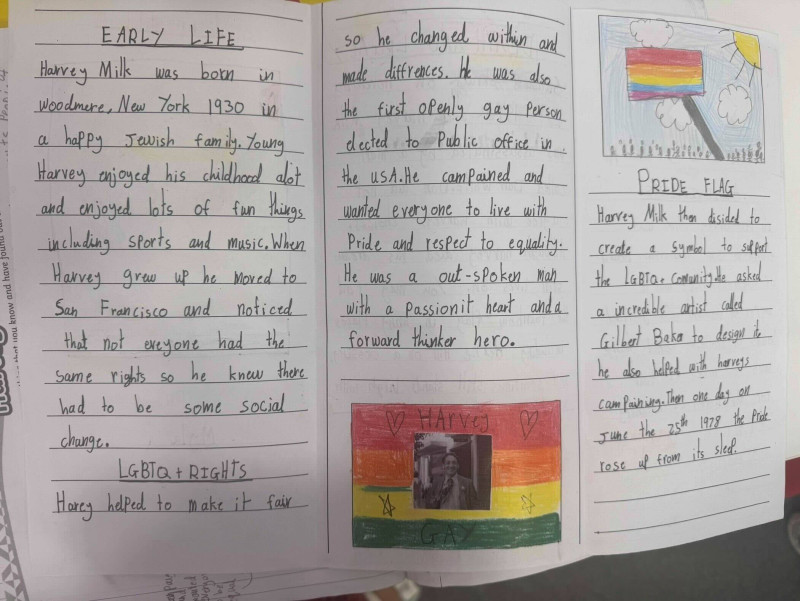 EARLY LIFE
Harvey Milk was born in
woodmere, New York 1930 in
a happy Jewish family. Young
Harvey enjoyed his childhood alot
and enjoyed lots of fun things
including sports and music. When
Harvey grew up he moved to
San Francisco and noticed
that not eveyone had the
same rights so he knew there
had to be some social
change.
LGBTQ+RIGHTS
Harey helped to make it fair
so he changed within and
made diffrences. He was also
the first openly gay person
elected to Public office in
the USA. He campained and
wanted everyone to live with
Pride and respect to equality.
He was a out-spoken man
with a passionit heart and a
forward thinker hero.
HArvey
GAY
PRIDE FLAG
Harvey Milk then disided to
create a symbol to support
the LGBTQ+ Comunity. He asked
a incredible artist called
Gilbert Baka to design it
he also helped with harveys
campaining. Then one day on
June the 25th 1978 the Pride
rose up from its sleep.
you know and have found out